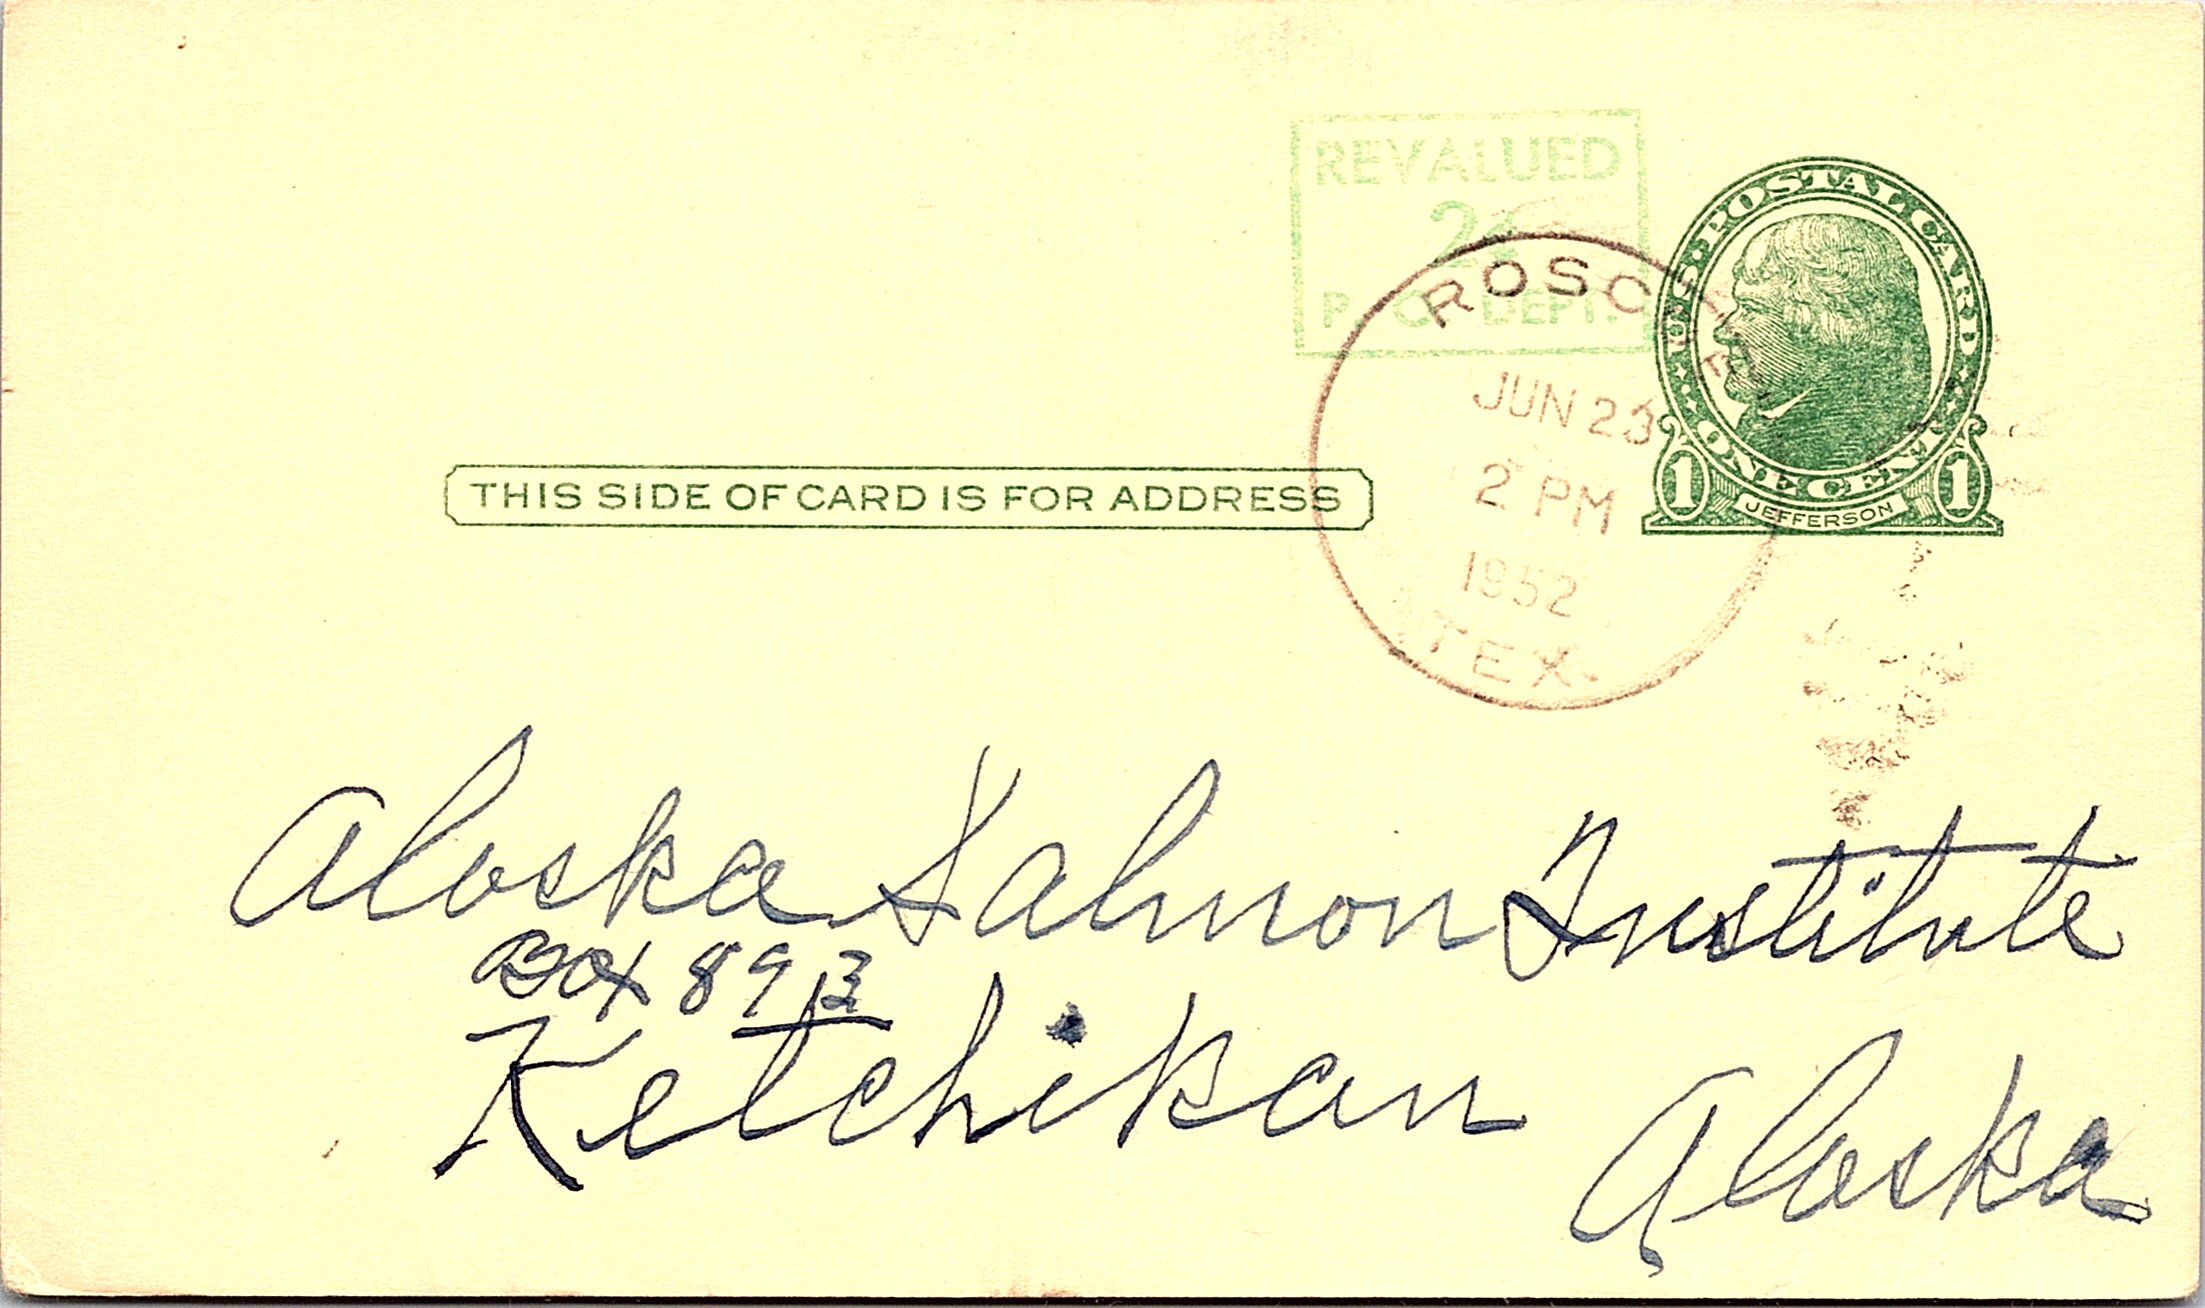 REVALUED
2¢
P. O. DEPT.
U.S. POSTAL CARD
ONE CENT
1 JEFFERSON 1
ROSCOE
JUN 23
2 PM
1952
TEX.
THIS SIDE OF CARD IS FOR ADDRESS
Alaska Salmon Institute
BOX 893
Ketchikan
Alaska